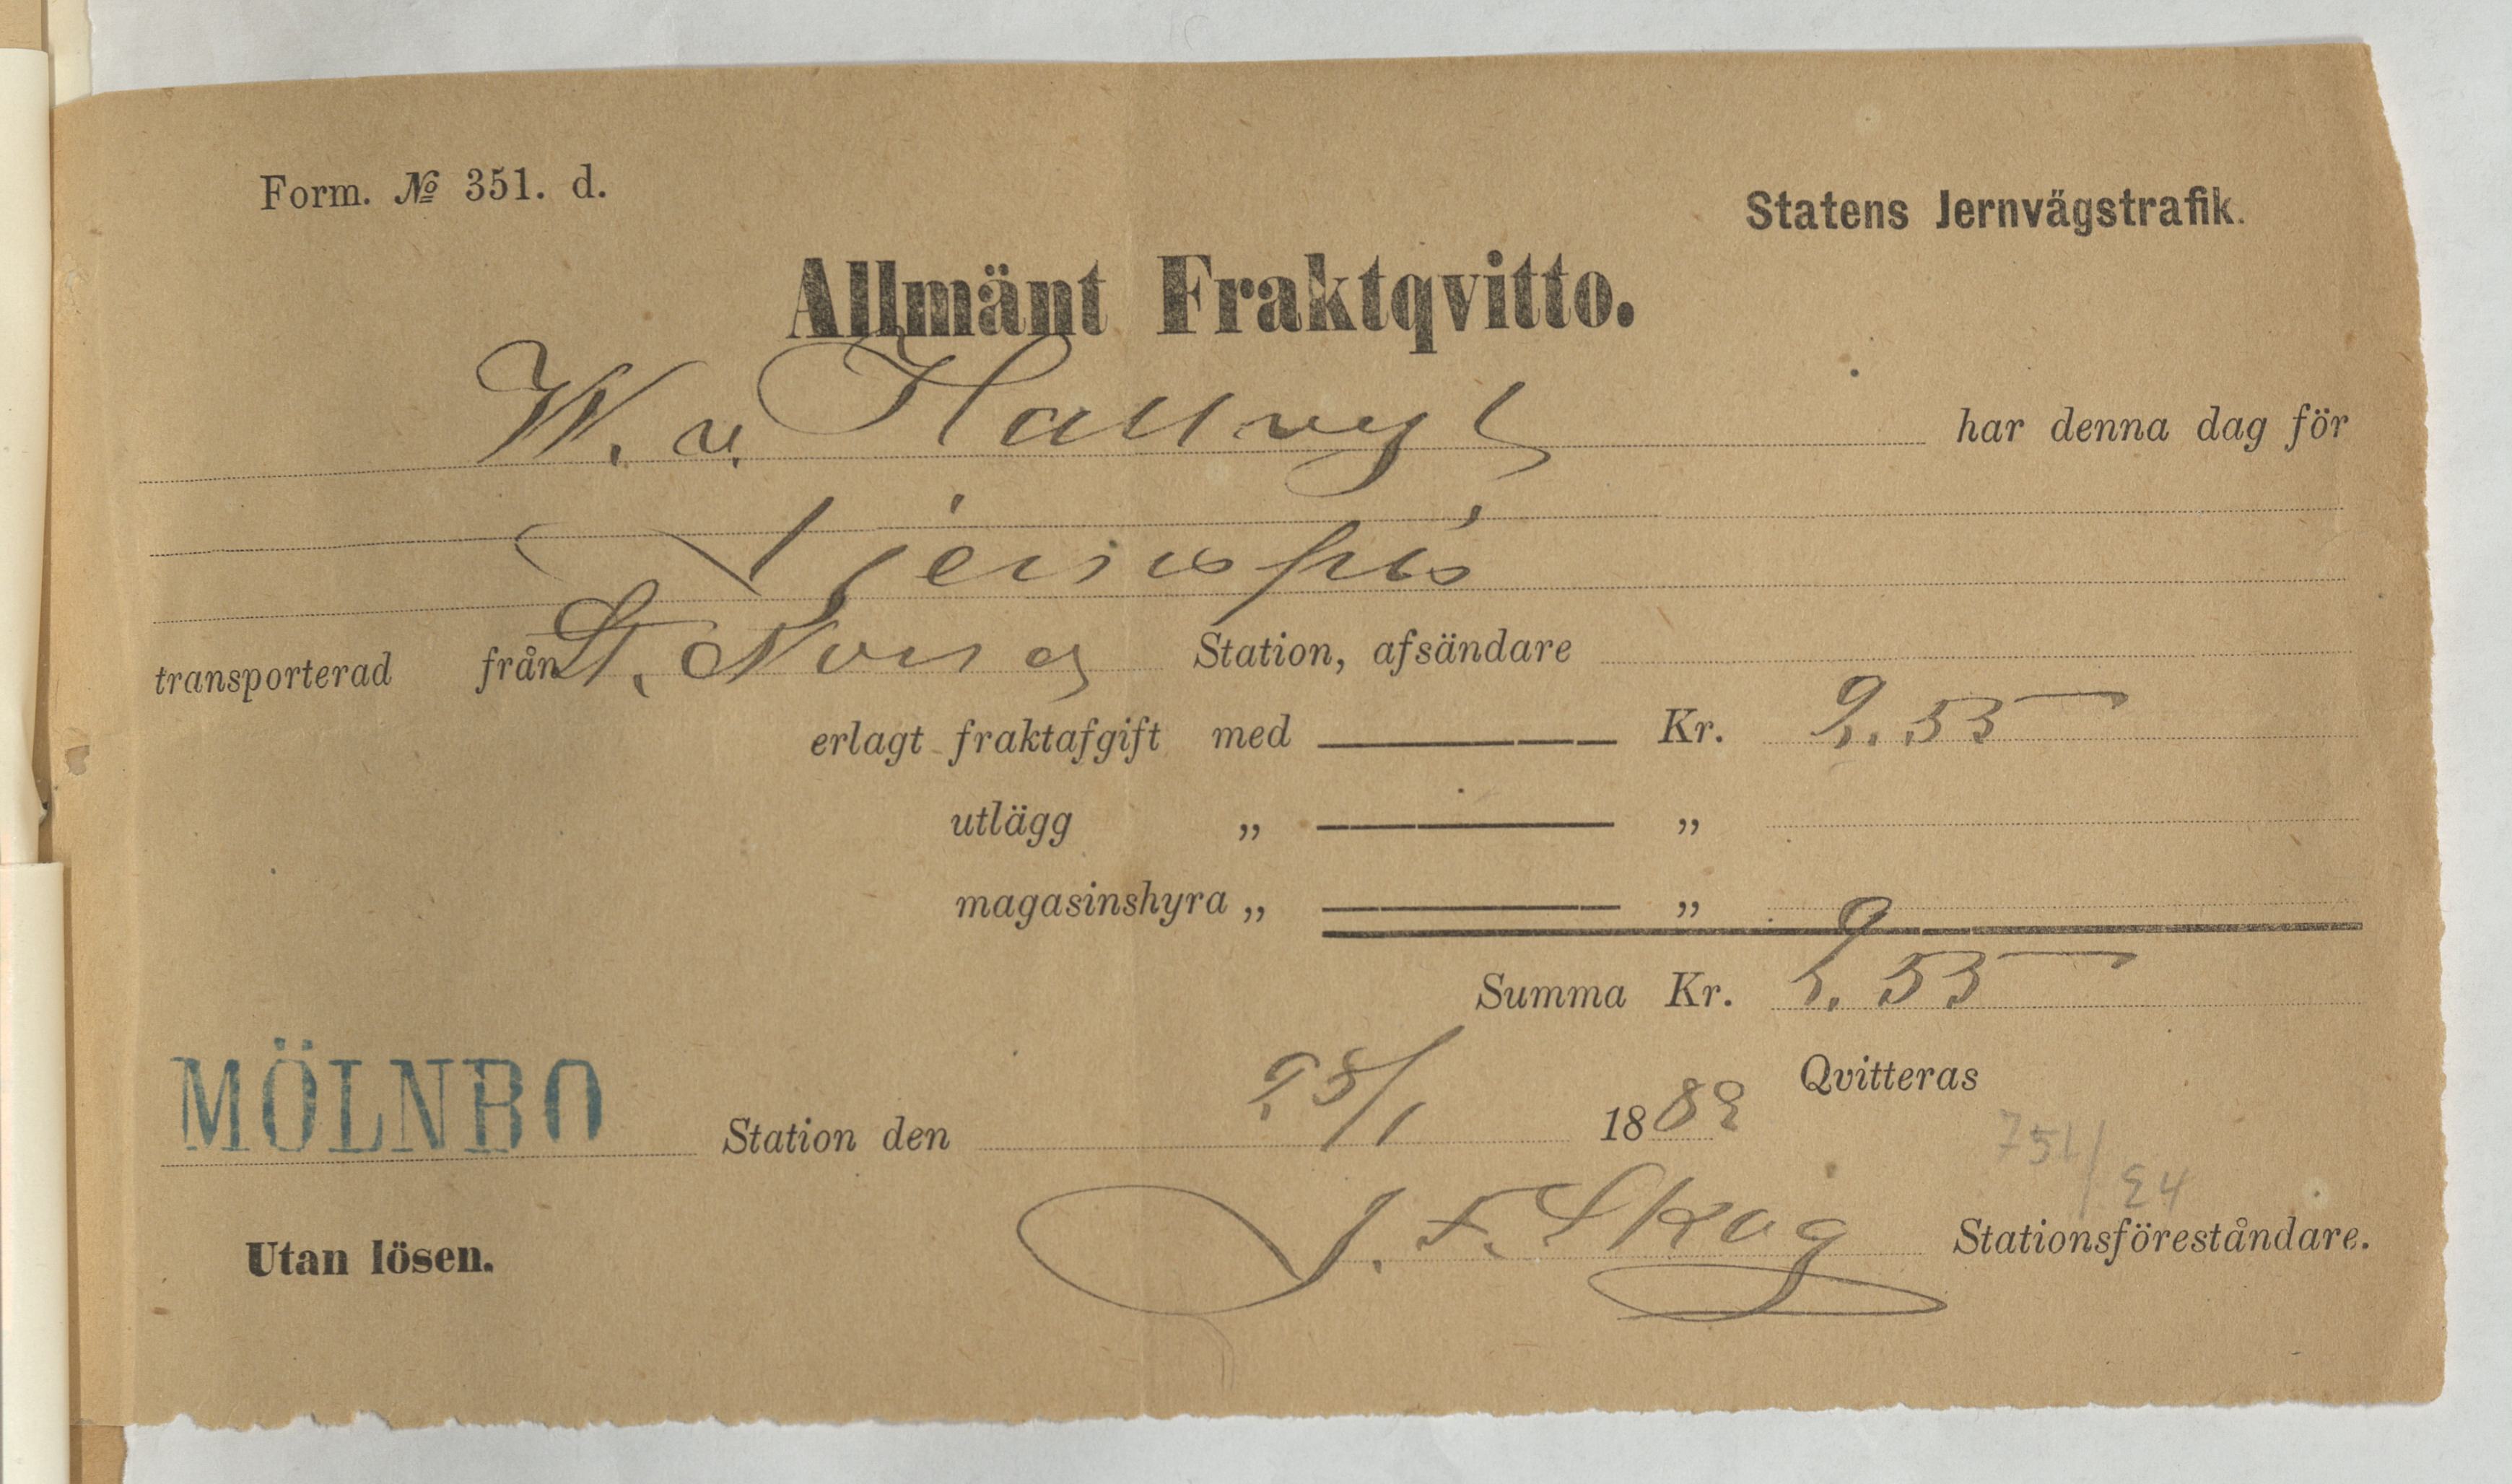 Form. № 351. d.
Statens Jernvägstrafik.
Allmänt Fraktqvitto.
W. v. Hallwyl har denna dag för
Jernspis
transporterad från St. Norra Station, afsändare
erlagt fraktafgift med Kr. 2.55
utlägg „ „
magasinshyra „ „
Summa Kr. 2.55
MÖLNBO Station den 28/1 1882 Qvitteras
751/
24
J. F. Skog Stationsföreståndare.
Utan lösen.